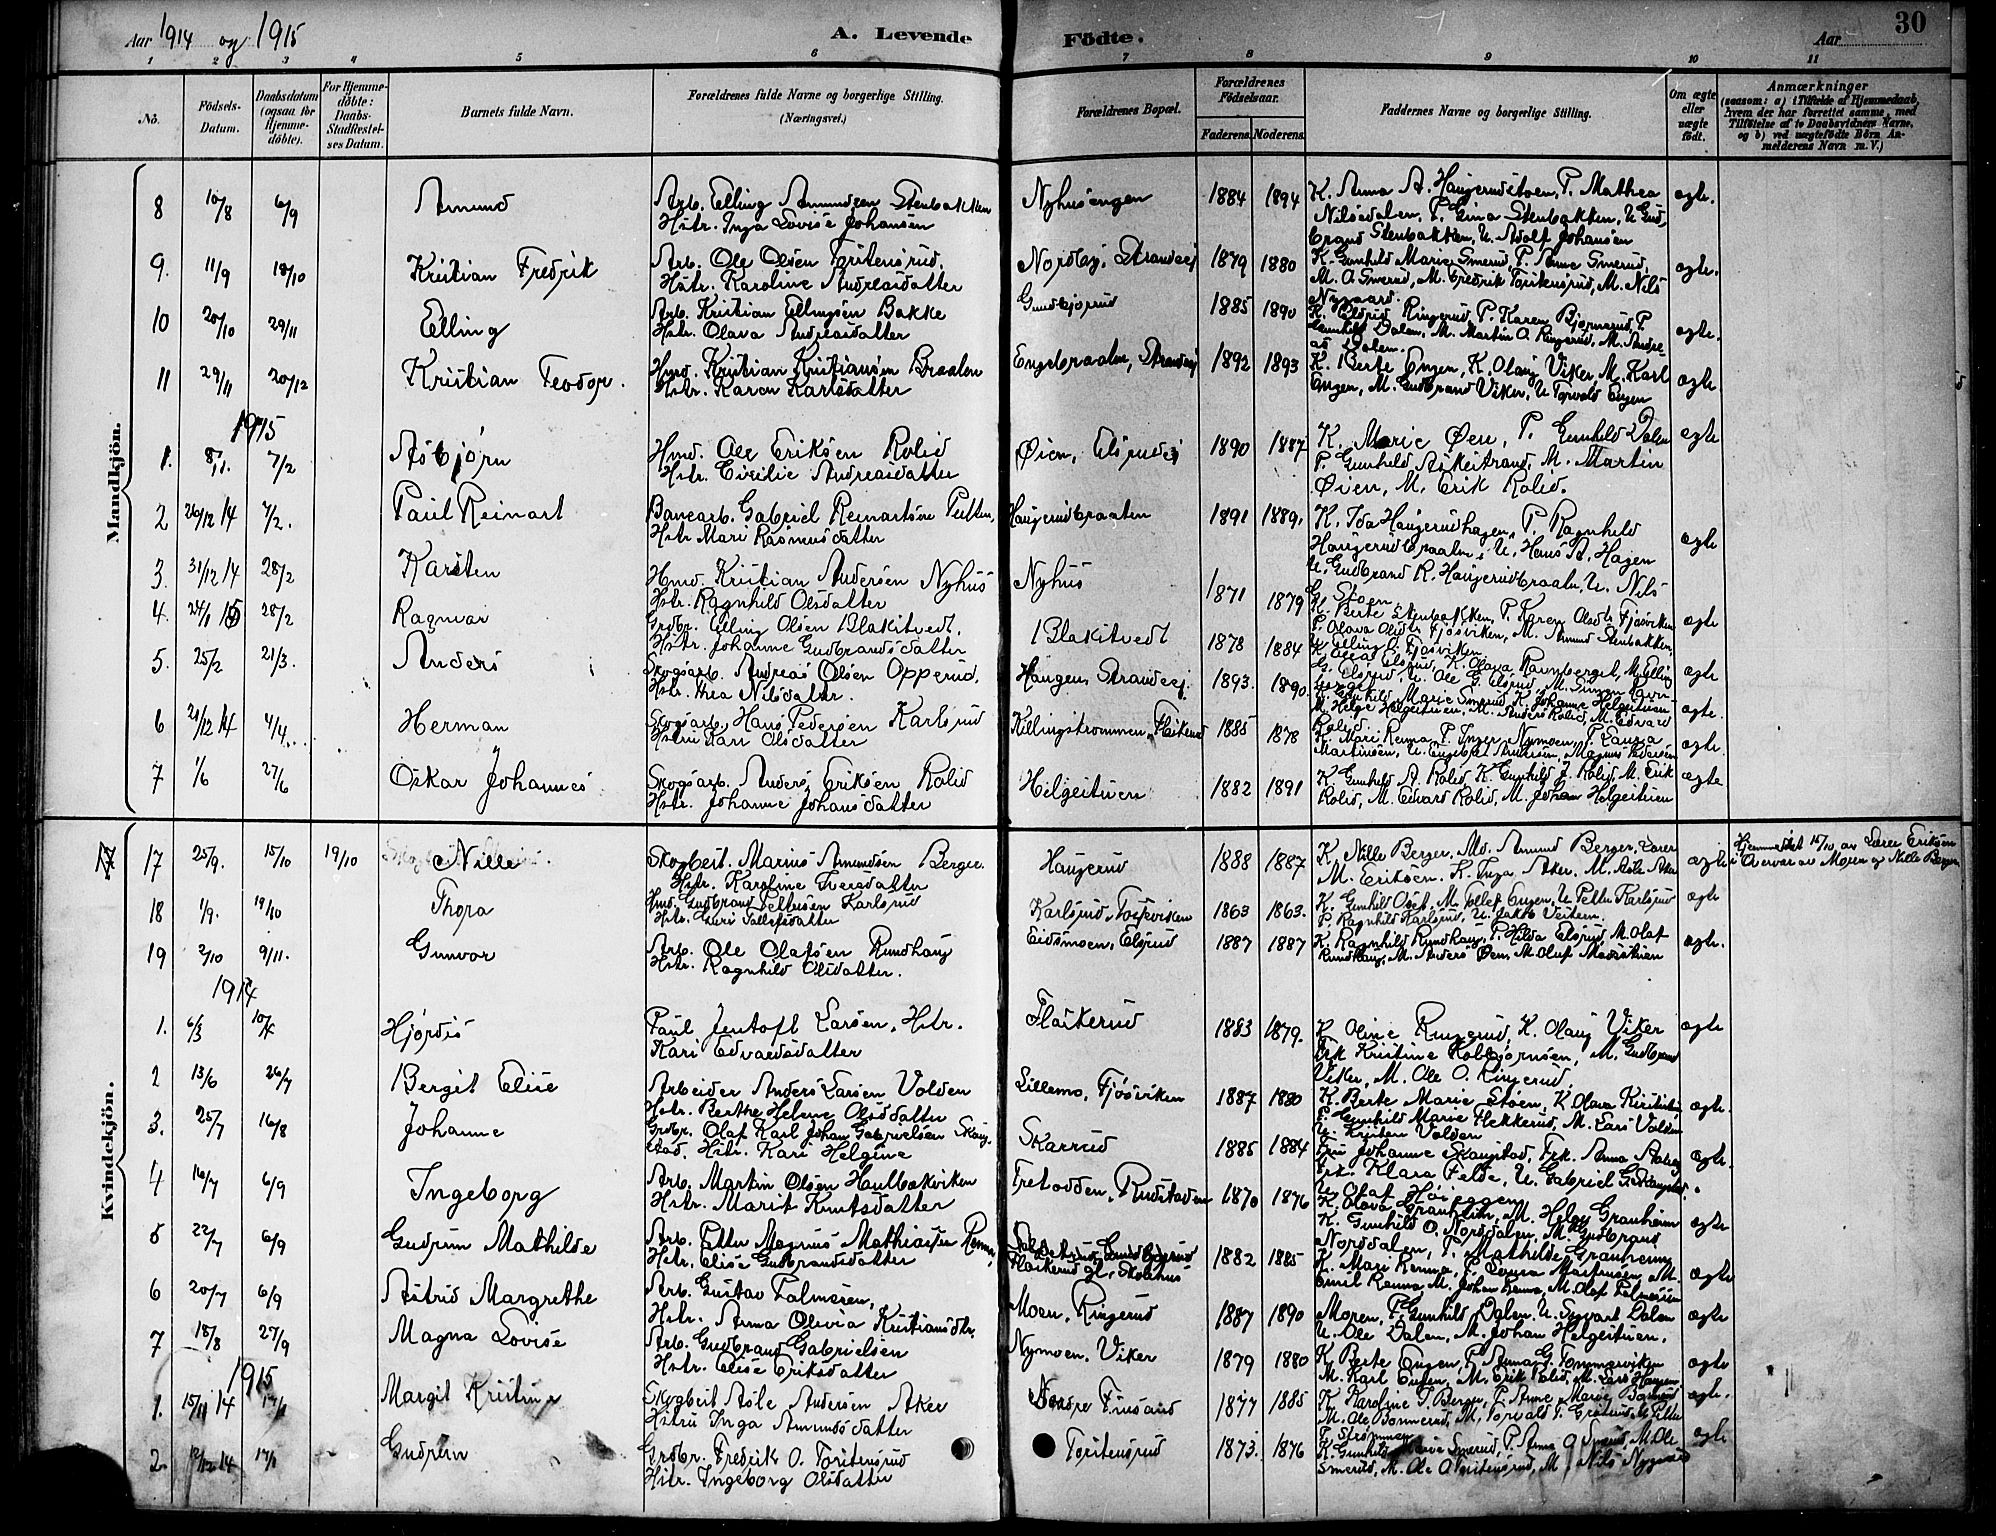 Aar 1914 og 1915
A. Levende Födte.
Aar
30
1 2 3 4 5 6 7 8 9 10 11
No.
Födsels-Datum.
Daabsdatum (ogsaa for Hjemme-döbte).
For Hjemme-döbte: Daabs-Stadfæstel-ses Datum.
Barnets fulde Navn.
Forældrenes fulde Navne og borgerlige Stilling. (Næringsvei.)
Forældrenes Bopæl.
Forældrenes Födselsaar.
Faderens. Moderens.
Faddernes Navne og borgerlige Stilling.
Om ægte eller uægte födt.
Anmærkninger
(saasom: a) i Tilfælde af Hjemmedaab, hvem der har forrettet samme, med Tilföielse af to Daabsvidners Navne, og b) ved uægtefödte Börn An-melderens Navn m. V.)
Mandkjön.
8 10/8 6/9 Amund
Arb. Elling Amundsen Stenbakken
Hstr. Inga Lovise Johansen
Nyhusengen 1884 1894
K. Anna A. Haugerudstoen, P. Mathea
Nilsedalen, P. Gina Stenbakken, U. Gud,
brand Stenbakken, U. Adolf Johansen
ægte.
9. 11/9 18/10 Kristian Fredrik
Arb. Ole Olsen Toritensrud,
Hstr. Karoline Andreasdatter
Nordby, Strandvej 1879 1880
K. Gunhild Marie Smerud, P. Anne Smerud,
M. O. Smerud, M. Fredrik Toritensrud, M. Nils
Nygaard.
ægte.
10 20/10 29/11 Elling
Arb. Kristian Ellingsen Bakke
Hstr. Olava Andreasdatter
Gudbjørud 1885 1890
K. Eldrid Ringerud, P. Karen Bjørnerud, P.
Gunhild Dalen, M. Martin O. Ringerud, M. Andre-
as Dalen.
ægte.
11 29/11 20/12 Kristian Teodor.
Hmd. Kristian Kristiansen Braaten
Hstr. Karen Karlsdatter
Engebraaten, Strandvej 1892 1893
K. Berte Engen, K. Olaug Viker, M. Karl
Engen, M. Gudbrand Viker, U. Torvald Engen
ægte
1915
1. 8/1. 7/2 Asbjørn
Hmd. Ole Eriksen Rolid
Hstr. Evedie Andreasdatter
Øien, Elsrudej 1890 1887
K. Marie Øen, P. Gunhild Dalen
P. Gunhild Askeitrand, M. Martin
Øien, M. Erik Rolid.
ægte
2 26/12 14 7/2. Paul Reinart
Banearb. Gabriel Reinartsen Putten,
Hstr Mari Rasmusdatter
Haugerudbraaten 1891 1889,
K. Ida Haugerudhagen, P. Ragnhild
Haugerudbraaten, U. Hans A. Hagen
U. Gudbrand R. Haugerudbraaten, U. Nils
G. Stoen
ægte
3. 31/12 14 28/2 Karsten
Hmd. Kristian Andersen Nyhus
Hstr. Ragnhild Olsdatter
Nyhus 1871 1879
4. 24/1 15 28/2 Ragnvar
Grdbr. Elling Olsen Blakitvedt,
Hstr. Johanne Gudbrandsdatter
Blakitvedt 1878 1884
K. Berte Stenbakken, P. Karen Olsdtr Fjøsviken
P. Olava Olsdtr Fjøsviken, M. Amund Stenbakken,
U. Elling O. Fjøsviken
ægte
5. 25/2 21/3. Anders
Skogsarb. Andreas Olsen Opperud,
Hstr. Thea Nilsdatter.
Haugen Strandvej. 1893. 1890.
Elsrud, K. Olava Ravnberget, M. Elling
Elsrud, U. Ole G. Elsrud, M. Simen Ravn
berget
ægte
6 21/12 14 4/4... Herman
Skogsarb, Hans Pedersen Karlsrud
Hstru Kari Olsdatter
Killingstrommen, Flikerud 1885 1878
K. Mari Renna, P. Inger Nymoen, P. Laura
Martinsen, U. Engebret Amundsen, Magnus Pedersen
ægte.
7 1/6 27/6 Oskar Johannes
Skogsarb. Anders Eriksen Rolid
Hstr. Johanne Johansdatter
Helgeituen 1882 1891
K. Gunhild A. Rolid, K. Gunhild J. Rolid, M. Erik
Rolid, M. Edvard Rolid, M. Johan Helgeituen
ægte
Kvindekjön.
17 25/9. 15/10 19/10 Nille
Skogbest. Marius Amundsen Berger.
Hstr. Karoline Iversdatter
Haugerud 1888 1887
K. Nille Berger. Md. Amund Berger. Lærer
M. Eriksen. K. Inga Aker. M. Asle Aker
ægte
Hjemmedøbt 15/10 av Lærer Eriksen
i Overvær av Moren og Nille Berger
18 1/9. 19/10 Thora
Hmd. Gudbrand Pettersen Karlsrud
Hstr. Guri Tollefsdatter
Karlsrud, Toskeviken 1863 1863.
K. Gunhild Oset, M. Tollef Engen, U. Petter Karlsrud
P. Ragnhild Karlsrud, U. Jakob Vestern.
ægte
19 2/10 9/11. Gunvor
Arb. Ole Olafsen Rundhaug
Hstr. Ragnhild Olsdatter.
Eidsmoen, Elsrud 1887 1887
K. Ragnhild Rundhaug, P. Hilda Elsrud, M. Olaf
Rundhaug, M. Anders Øen, M. Oluf Modistuen
ægte.
1914
1. 6/3 Hjørdis
Paul Jentoft Larsen, Hstr.
Kari Edvardsdatter
Flaskerud 1883 1879.
K. Oline Ringerud, K. Olaug Viker
Frk Kristine Kolbjørnsen, M. Gudbrand
Viker, M. Ole O. Ringerud.
ægte
2 13/6 26/7 Bergit Elise
Arbeider Anders Larsen Volden
Hstr. Berthe Helene Olsdatter
Lillemo, Fjøsviken 1887 1880
K. Berte Marie Støen, K. Olava Kristi
P. Gunhild Marie Flekkerud, M. Lars Volden
U. Kristen Volden
ægte.
3. 25/7 16/8 Johanne
Grdbr. Olaf Karl Johan Gabrielsen Skaug,
stad, Hstr. Kari Helgine
Skarrud 1885 1884
Fru Johanne Skaugstad, Frk. Anna
Frk. Klara Felde, U. Gabriel G. Skaugstad.
U. Olaf
ægte.
4 16/7 6/9 Ingeborg
Arb. Martin Olsen Haulbakviken
Hstr. Marit Knutsdatter
Tretodden, Rudstaden 1870 1876
K. Olava Granheim, M. Helge Granheim
K. Gunhild O. Norddalen, M. Gudbrand
Norddalen, P. Mathilde Granheim
ægte
5 22/7 6/9 Gudrun Mathilde
Arb. Petter Magnus Mathiassen Renna,
Hstr. Elise Gudbrandsdatter
Flaskerud gl. Skolehus 1882 1885
K. Mari Renna, P. Laura Martinsen, M.
Emil Renna, M. Johan Renna, M. Olaf Talmersen
ægte
6 20/7 6/9 Astrid Margrethe
Arb. Gustav Talmesen,
Hstr. Anna Olivia Kristiansdtr.
Moen, Ringerud 1887 1890
Moren, P. Gunhild Dalen, U. Sygvart Dalen
U. Ole Dalen, M. Johan Helgeituen.
ægte
7 18/8 27/9 Magna Lovise
Arb. Gudbrand Gabrielsen
Hstr. Elise Eriksdatter
Nymoen, Viker 1879 1880
K. Berte Engen, P. Anna G. Tommerviken
M. Karl Engen, M. Erik Rolid, M. Lars Haugen
ægte
1915
1. 15/11 14 Margit Kristine
Skogbest Asle Andersen Aker
Hstru Inga Amundsdatter
Nordre Finsand 1877 1885
K. Karoline I. Berger, P. Anne Marie Bonnerud
M. Ole Bonnerud, M. Torvald T. Grøterud, M. Petter
T. Strømmen
ægte.
2. 12/12 14 17/1 Gudrun
Grdbr. Fredrik O. Toritensrud
Hstr. Ingeborg Olsdatter
Toritensrud 1873. 1876
K. Gunhild Marie Smerud, P. Anna O. Smerud, M. Ole
Smerud, M. Ole O. Toritensrud, M. Nils Nygaard
ægte